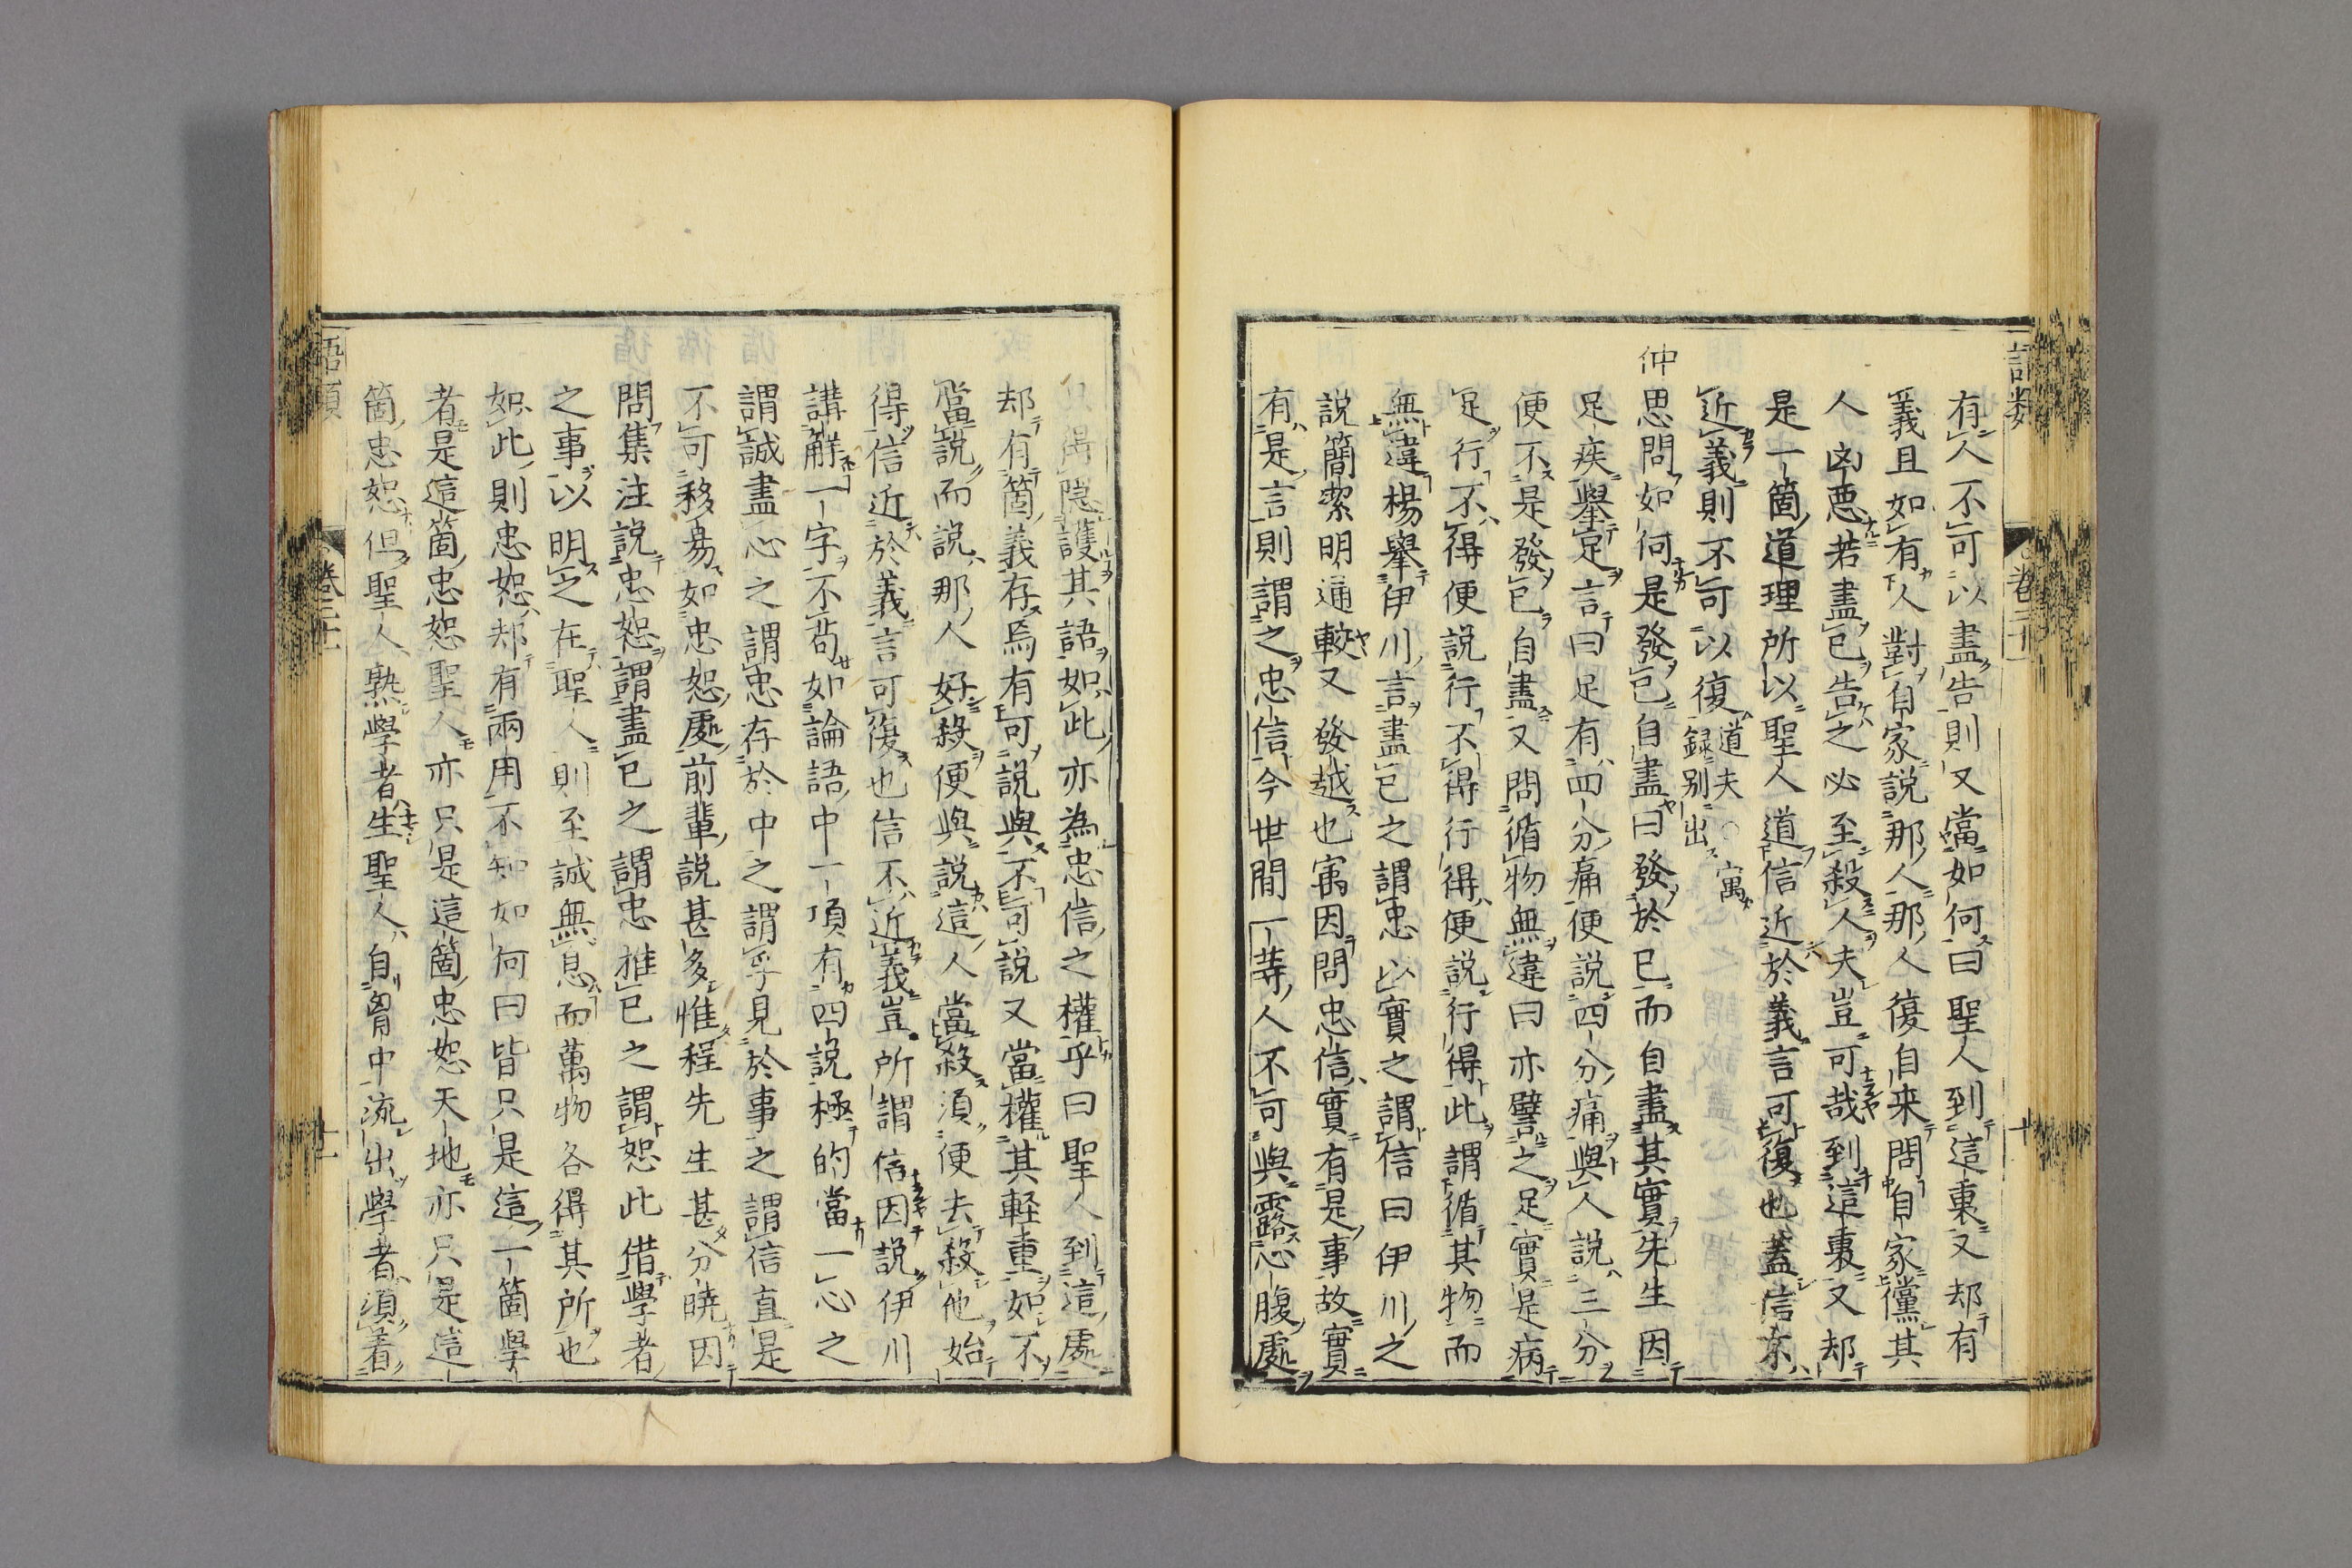 有人不可以盡告則又當如何曰聖人到這裏又却有
義且如有人對自家說那人那人復自来問自家黨其
人凶惡若盡己告之必至殺人夫豈可哉到這裏又却
是一箇道理所以聖人道信近於義言可復也蓋信不
近義則不可以復道夫○寓
録別出
仲思問如何是發己自盡曰發於己而自盡其實先生因
足疾舉足言曰足有四分痛便說四分痛與人說三分
便不是發己自盡又問循物無違曰亦譬之足實是病
足行不得便說行不得行得便說行得此謂循其物而
無違楊舉伊川言盡己之謂忠以實之謂信曰伊川之
說簡潔明通較又發越也寓因問忠信實有是事故實
有是言則謂之忠信今世間一等人不可與露心腹處
隠護其語如此亦為忠信之權乎曰聖人到這處
却有箇義存焉有可說與不可說又當權其軽重如不
當說而說那人好殺便與說這人當殺須便去殺他始
得信近於義言可復也信不近義豈所謂信因說伊川
講解一字不苟如論語中一項有四說極的當一心之
謂誠盡心之謂忠存於中之謂孚見於事之謂信直是
不可移易如忠恕處前輩說甚多惟程先生甚分曉因
問集注說忠恕謂盡己之謂忠推己之謂恕此借學者
之事以明之在聖人則至誠無息而萬物各得其所也
如此則忠恕却有兩用不知如何曰皆只是這一箇學
者是這箇忠恕聖人亦只是這箇忠恕天地亦只是這
箇忠恕但聖人熟學者生聖人自胷中流出學者須着
語類
卷二十一
十一